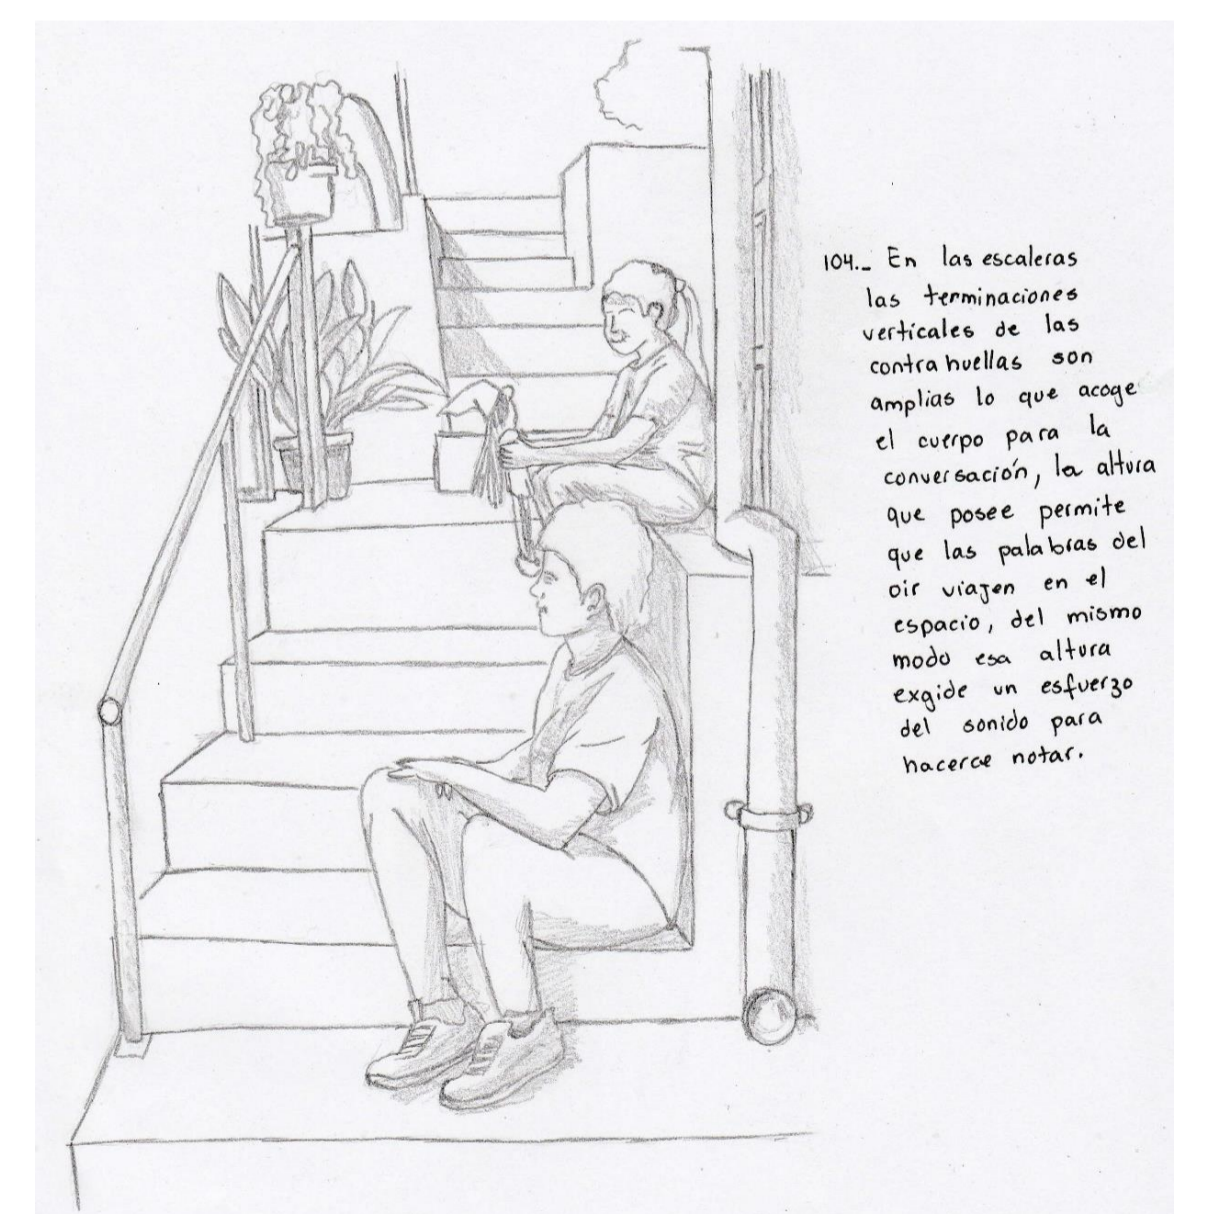 104._ En las escaleras
las terminaciones
verticales de las
contrahuellas son
amplias lo que acoge
el cuerpo para la
conversación, la altura
que posee permite
que las palabras del
oir viajen en el
espacio, del mismo
modo esa altura
exgide un esfuerzo
del sonido para
hacerce notar.